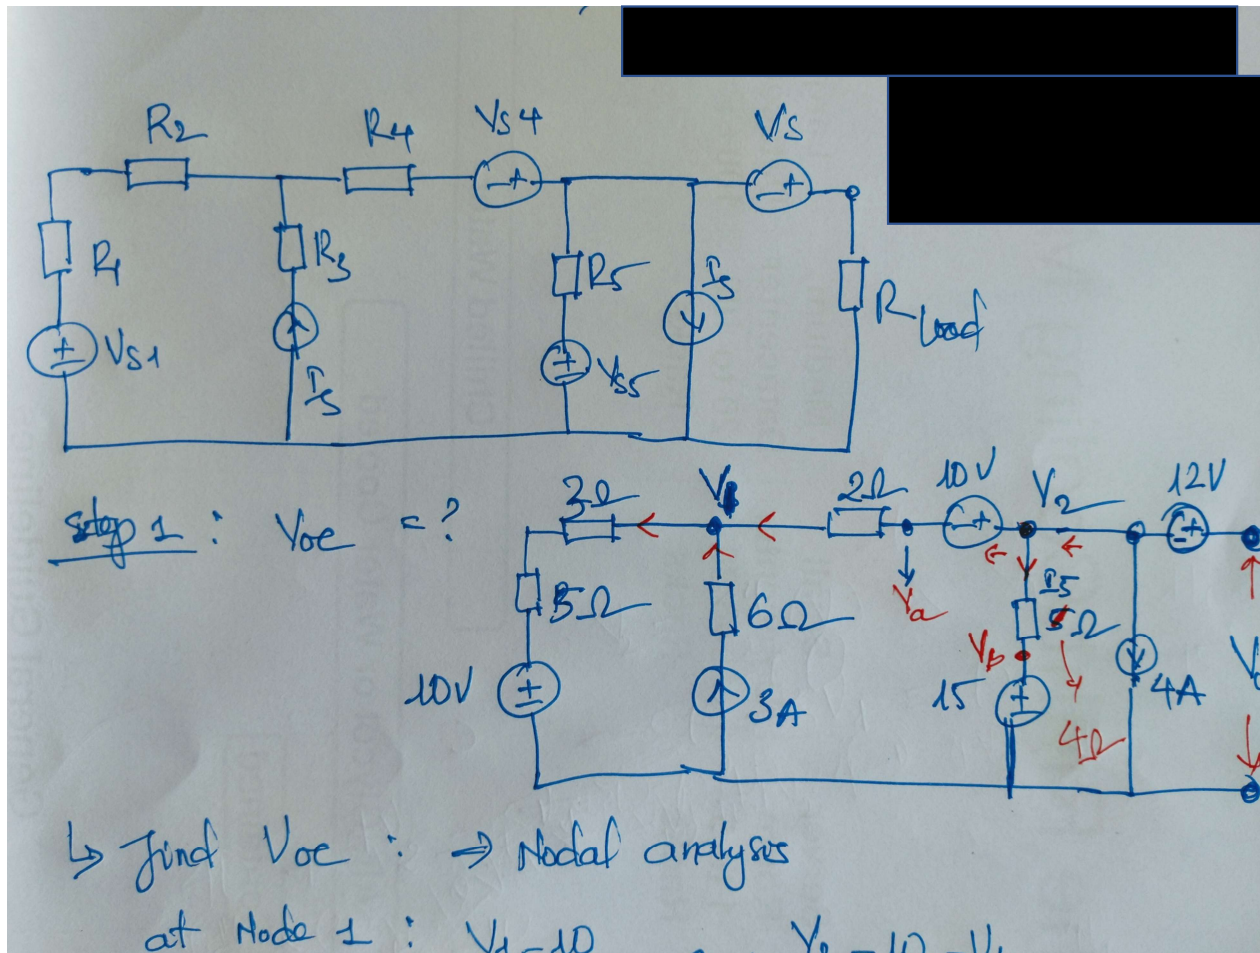 R2 R4 VS4 VS
R1 R3 R5 IS R Load
VS1 IS VS5
step 1 : Voc = ?
3Ω V1 2Ω 10V V2 12V
5Ω 6Ω Va I5 5Ω
10V 3A Vb 15 4Ω 4A
↳ Find Voc : → Nodal analysis
at Node 1 : V1-10